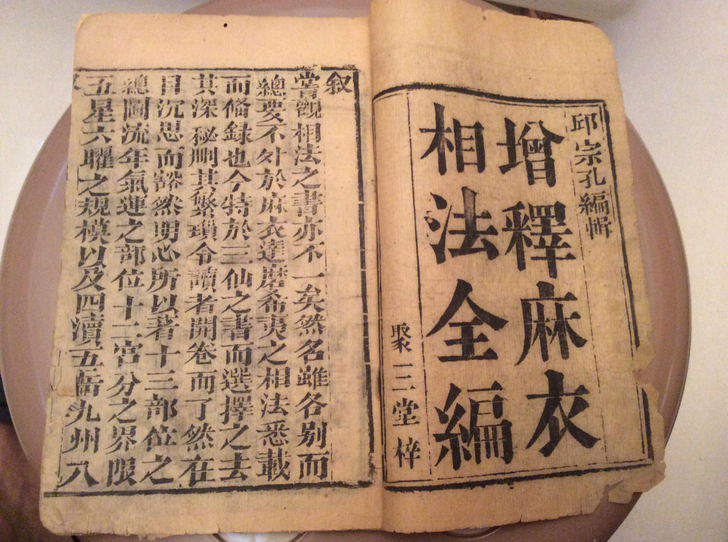 邱宗孔編輯
增釋麻衣
相法全編
聚三堂梓
叙
嘗觀相法之書亦不一矣然名雖各別而
總要不外於麻衣達磨希夷之相法悉載
而備録也今特於三仙之書而選擇之去
其深秘刪其繁鎖令讀者開卷而了然在
目沉思而豁然明心所以著十三部位之
總圖流年氣運之部位十二宮分之界限
五星六曜之規模以及四瀆五岳九州八